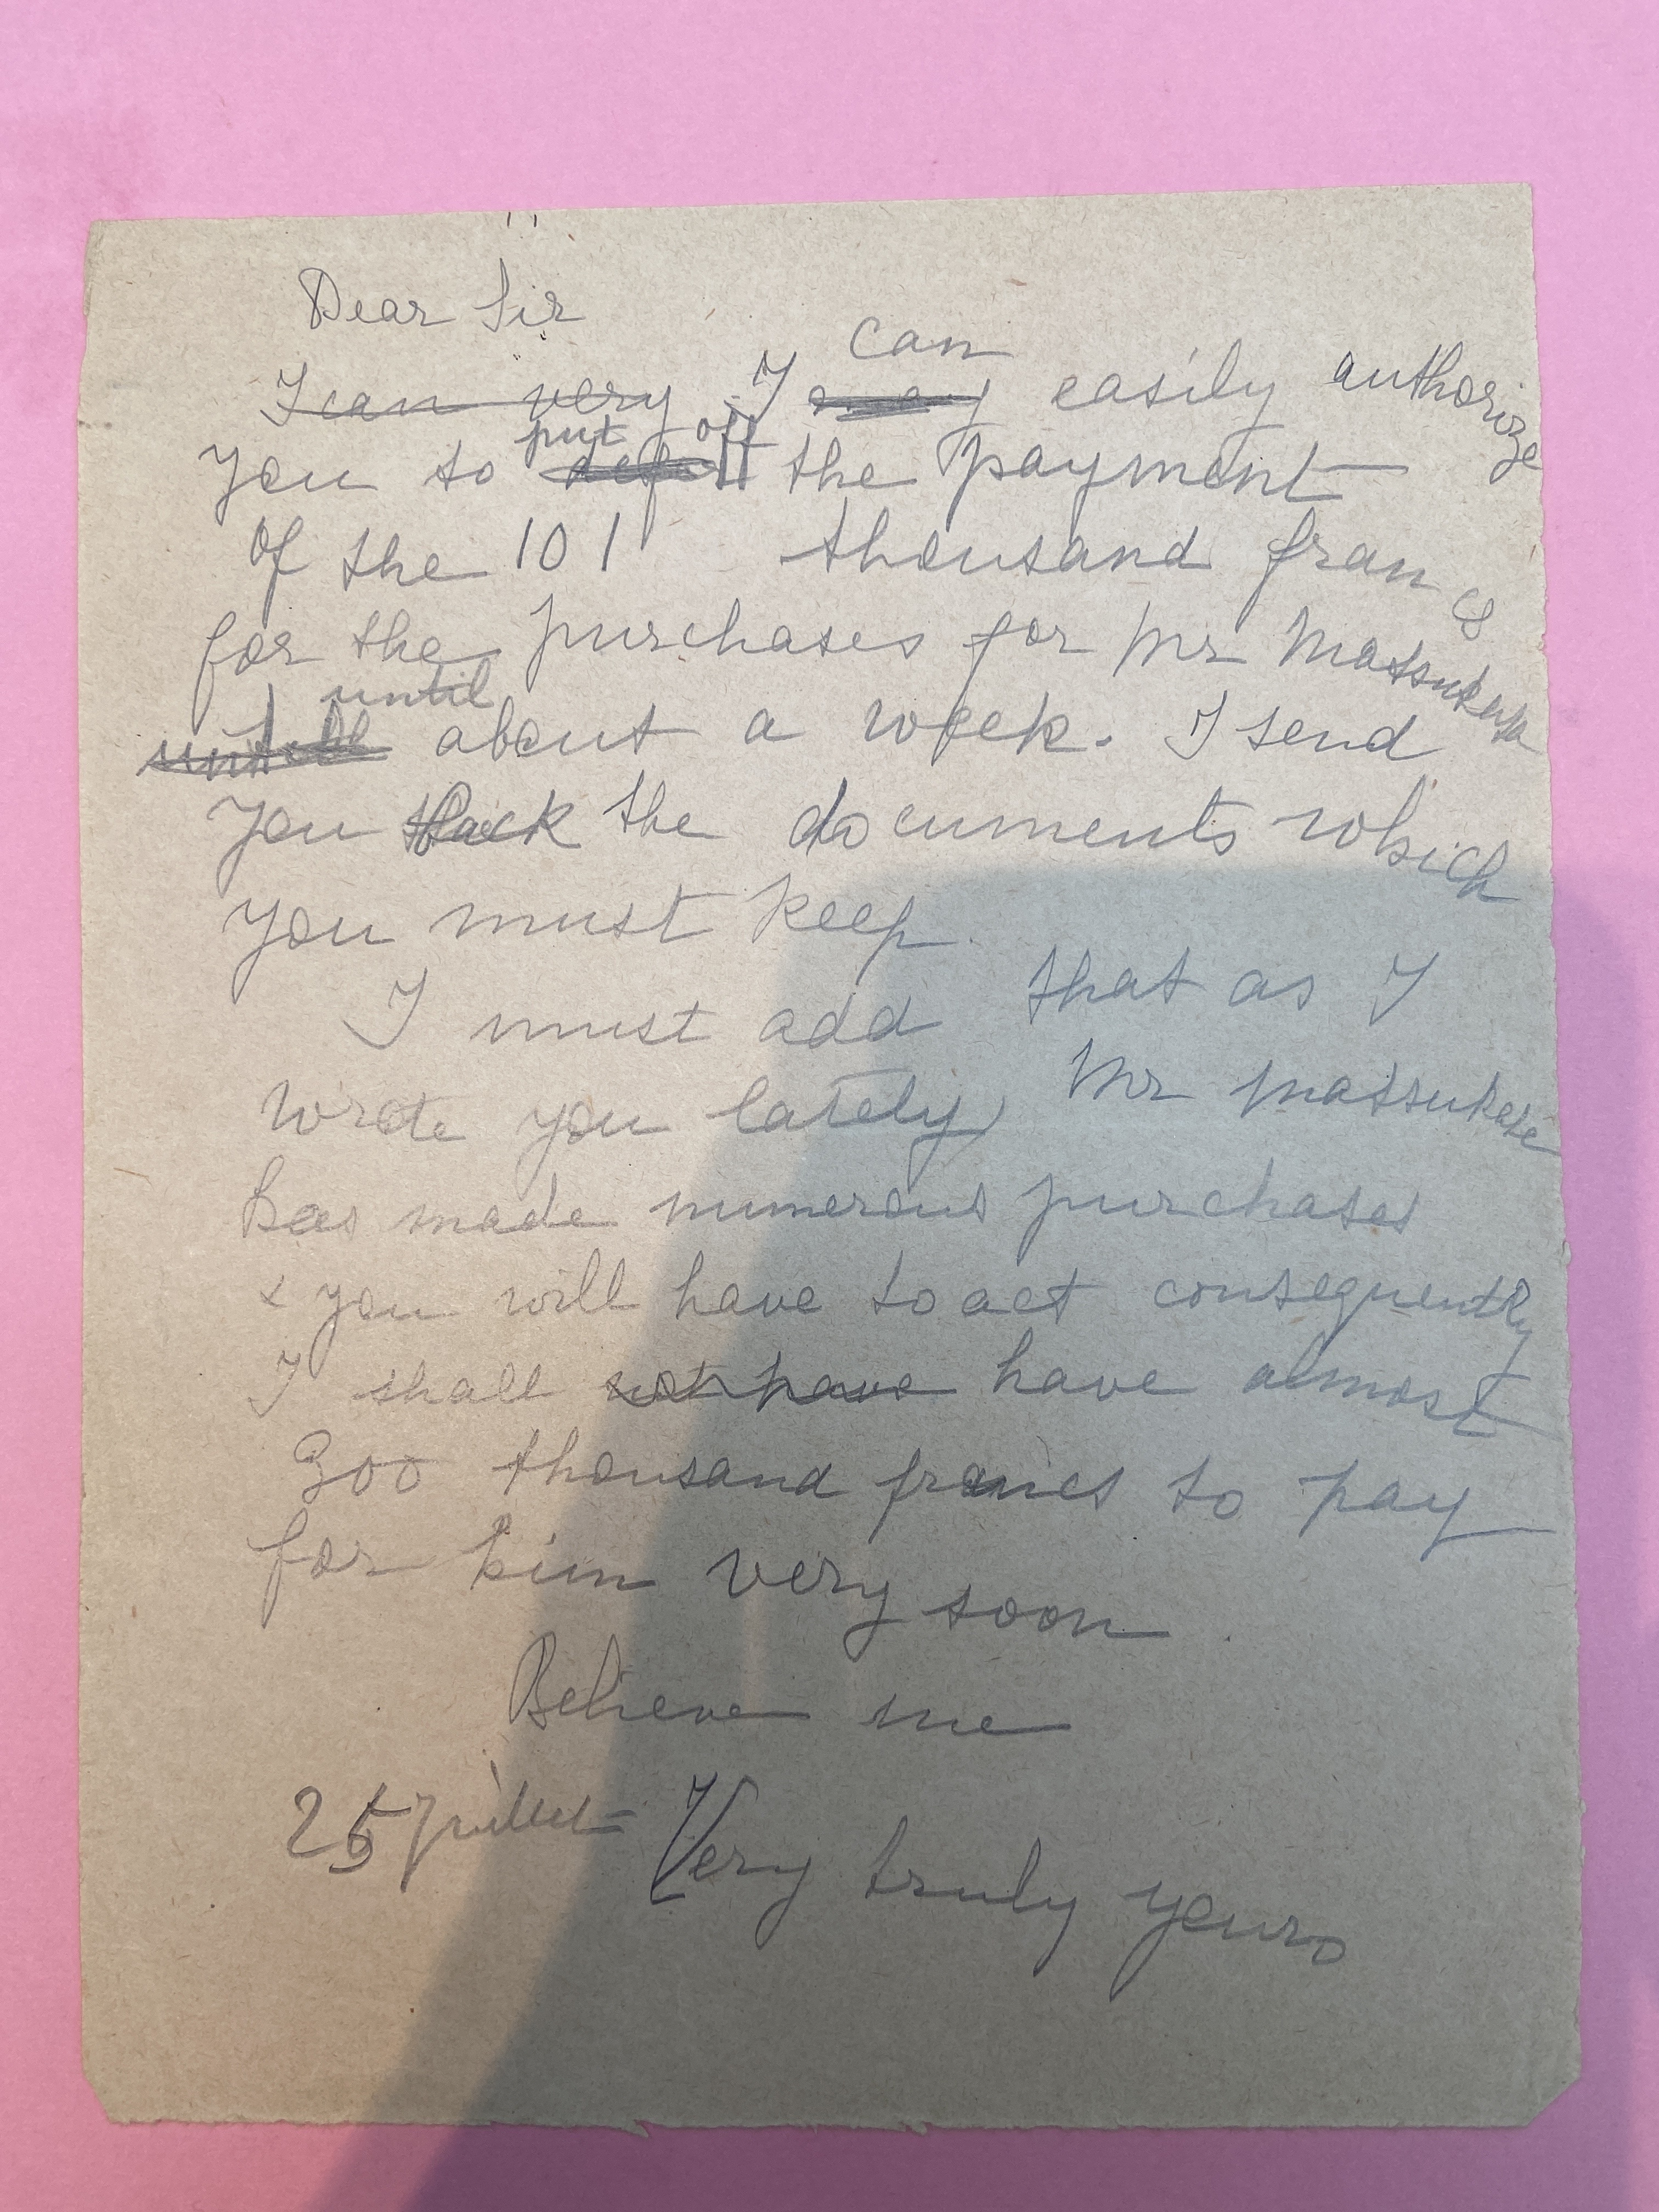 Dear Sir
I can very I may can easily authorize
you to defer put off the payment
of the 101 thousand francs
for the purchases for Mr Matsukata
untill until about a week. I send
you back the documents which
you must keep.
I must add that as I
wrote you lately, Mr Matsukata
has made numerous purchases
& you will have to act consequently
I shall not have have almost
300 thousand francs to pay
for him very soon.
Believe me
25 juillet Very truly yours